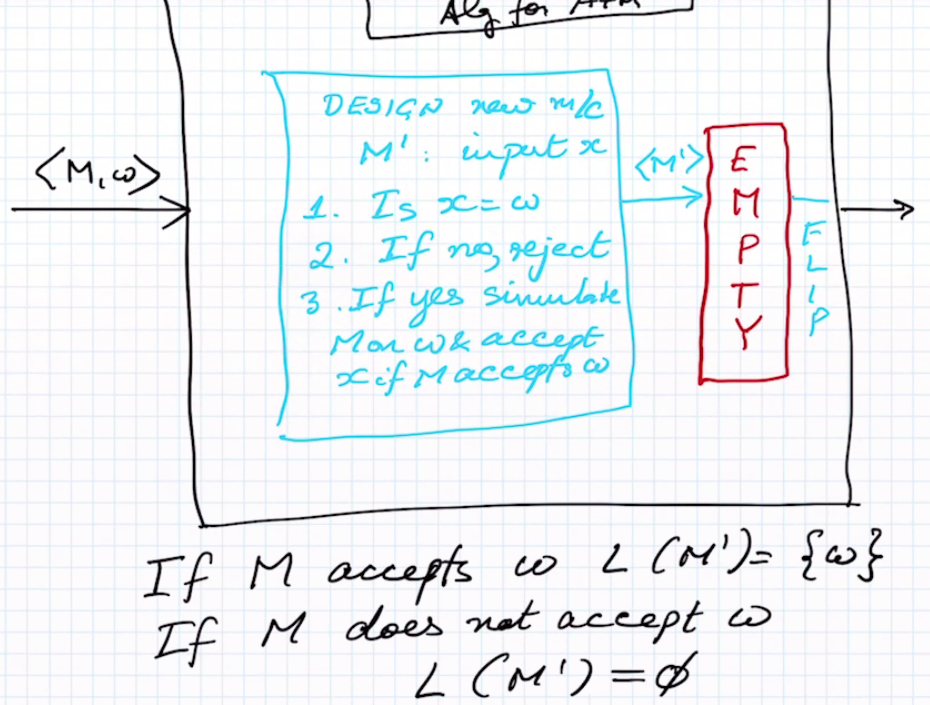 Alg for ATM
DESIGN new m/c
M' : input x
1. Is x = ω
2. If no, reject
3. If yes simulate
M on ω & accept
x if M accepts ω
<M, ω>
<M'>
EMPTY
FLIP
If M accepts ω L(M') = {ω}
If M does not accept ω
L(M') = ϕ